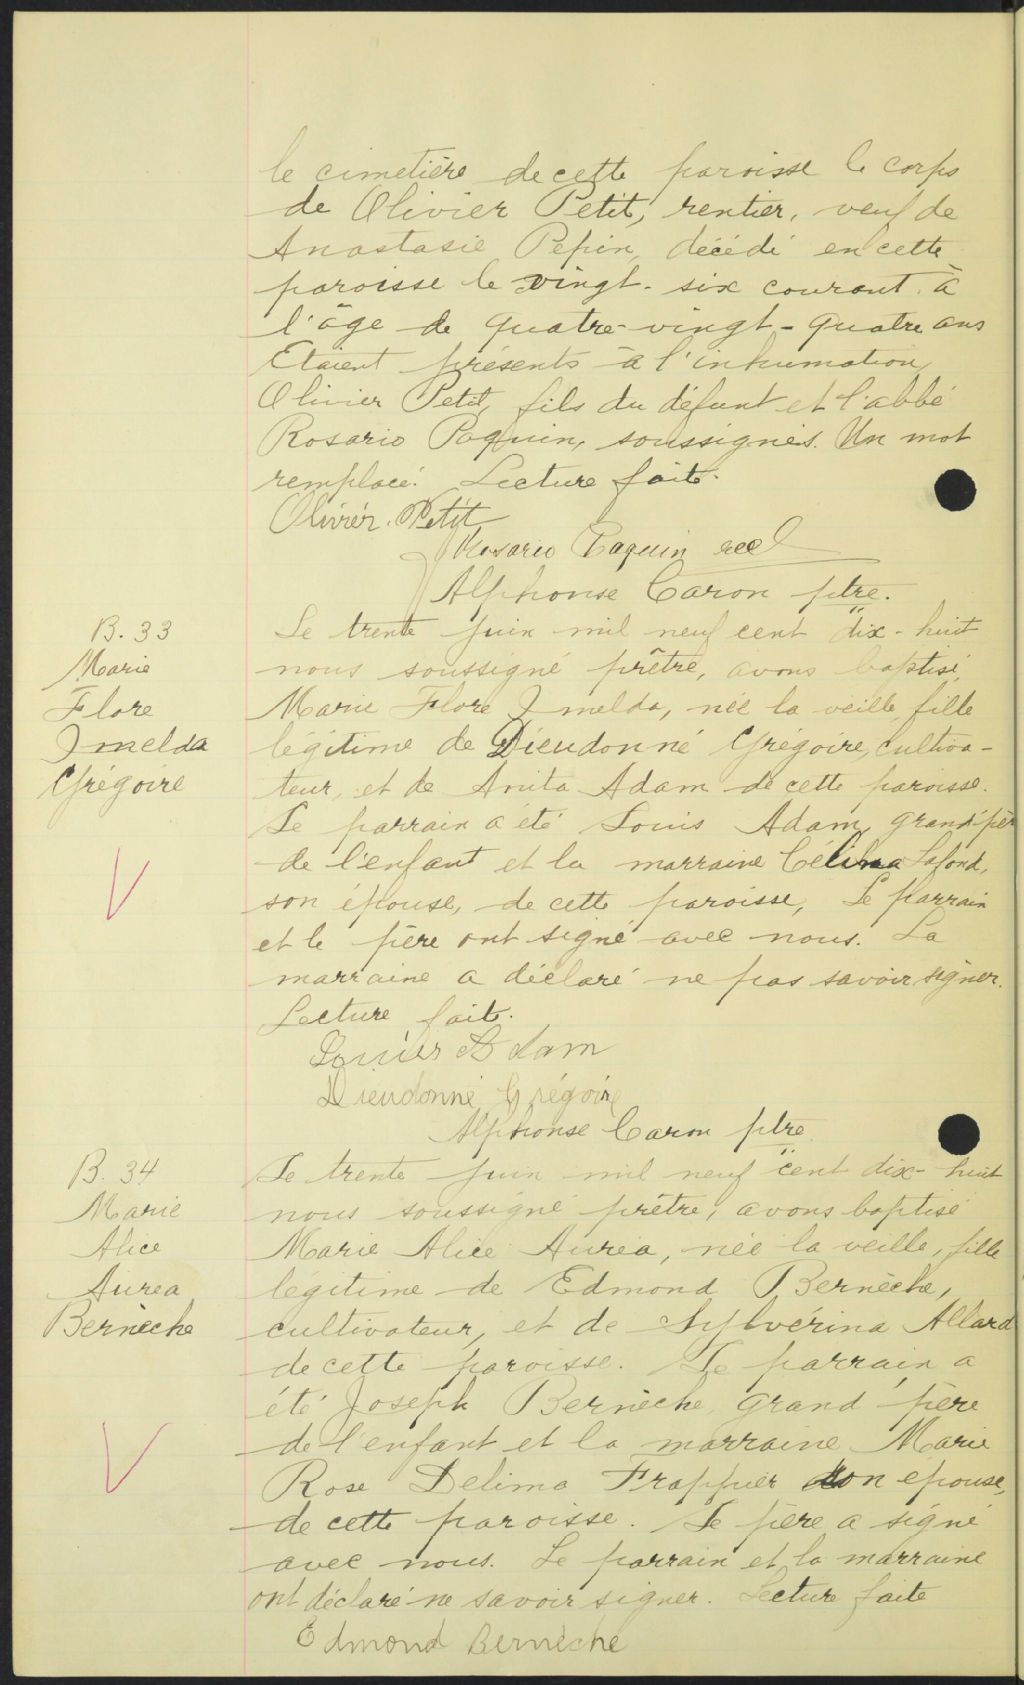 le cimetière de cette paroisse le corps
de Olivier Petit, rentier, veuf de
Anastasie Pepin, décédé en cette
paroisse le vingt-six courant à
l'âge de quatre-vingt-quatre ans
Etaient présents à l'inhumation,
Olivier Petit, fils du défunt et l'abbé
Rosario Paquin, soussignés. Un mot
remplacé. Lecture faite.
Olivier Petit
Rosario Paquin eccl
Alphonse Caron ptre.
B. 33
Marie
Flore
Imelda
Grégoire
Le trente juin mil neuf cent dix-huit
nous soussigné prêtre, avons baptisé,
Marie Flore Imelda, née la veille, fille
légitime de Dieudonné Grégoire, cultiva-
teur, et de Anita Adam de cette paroisse.
Le parrain a été Louis Adam, grand'père
de l'enfant et la marraine Célina Lafond,
son épouse, de cette paroisse, Le parrain
et le père ont signé avec nous. La
marraine a déclaré ne pas savoir signer.
Lecture faite.
Louis Adam
Dieudonné Grégoire
Alphonse Caron ptre
B. 34
Marie
Alice
Aurea
Bernèche
Le trente juin mil neuf cent dix-huit
nous soussigné prêtre, avons baptisé
Marie Alice Auréa, née la veille, fille
légitime de Edmond Bernèche,
cultivateur, et de Sylvérina Allard
de cette paroisse. Le parrain a
été Joseph Bernèche grand'père
de l'enfant et la marraine Marie
Rose Delima Frappier son épouse,
de cette paroisse. Le père a signé
avec nous. Le parrain et la marraine
ont déclaré ne savoir signer. Lecture faite
Edmond Bernèche